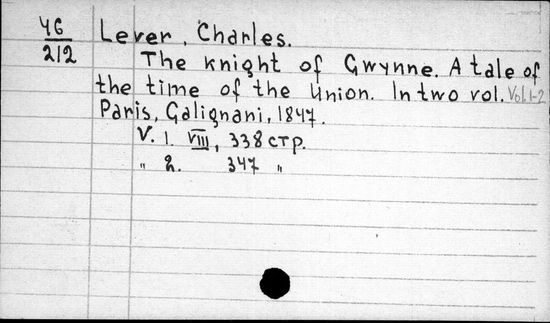 46
212
Lever, Charles.
The knight of Gwynne. A tale of
the time of the Union. In two vol. Vol. 1-2
Paris, Galignani, 1847.
V. 1. VIII, 338 стр.
" 2. 347 "